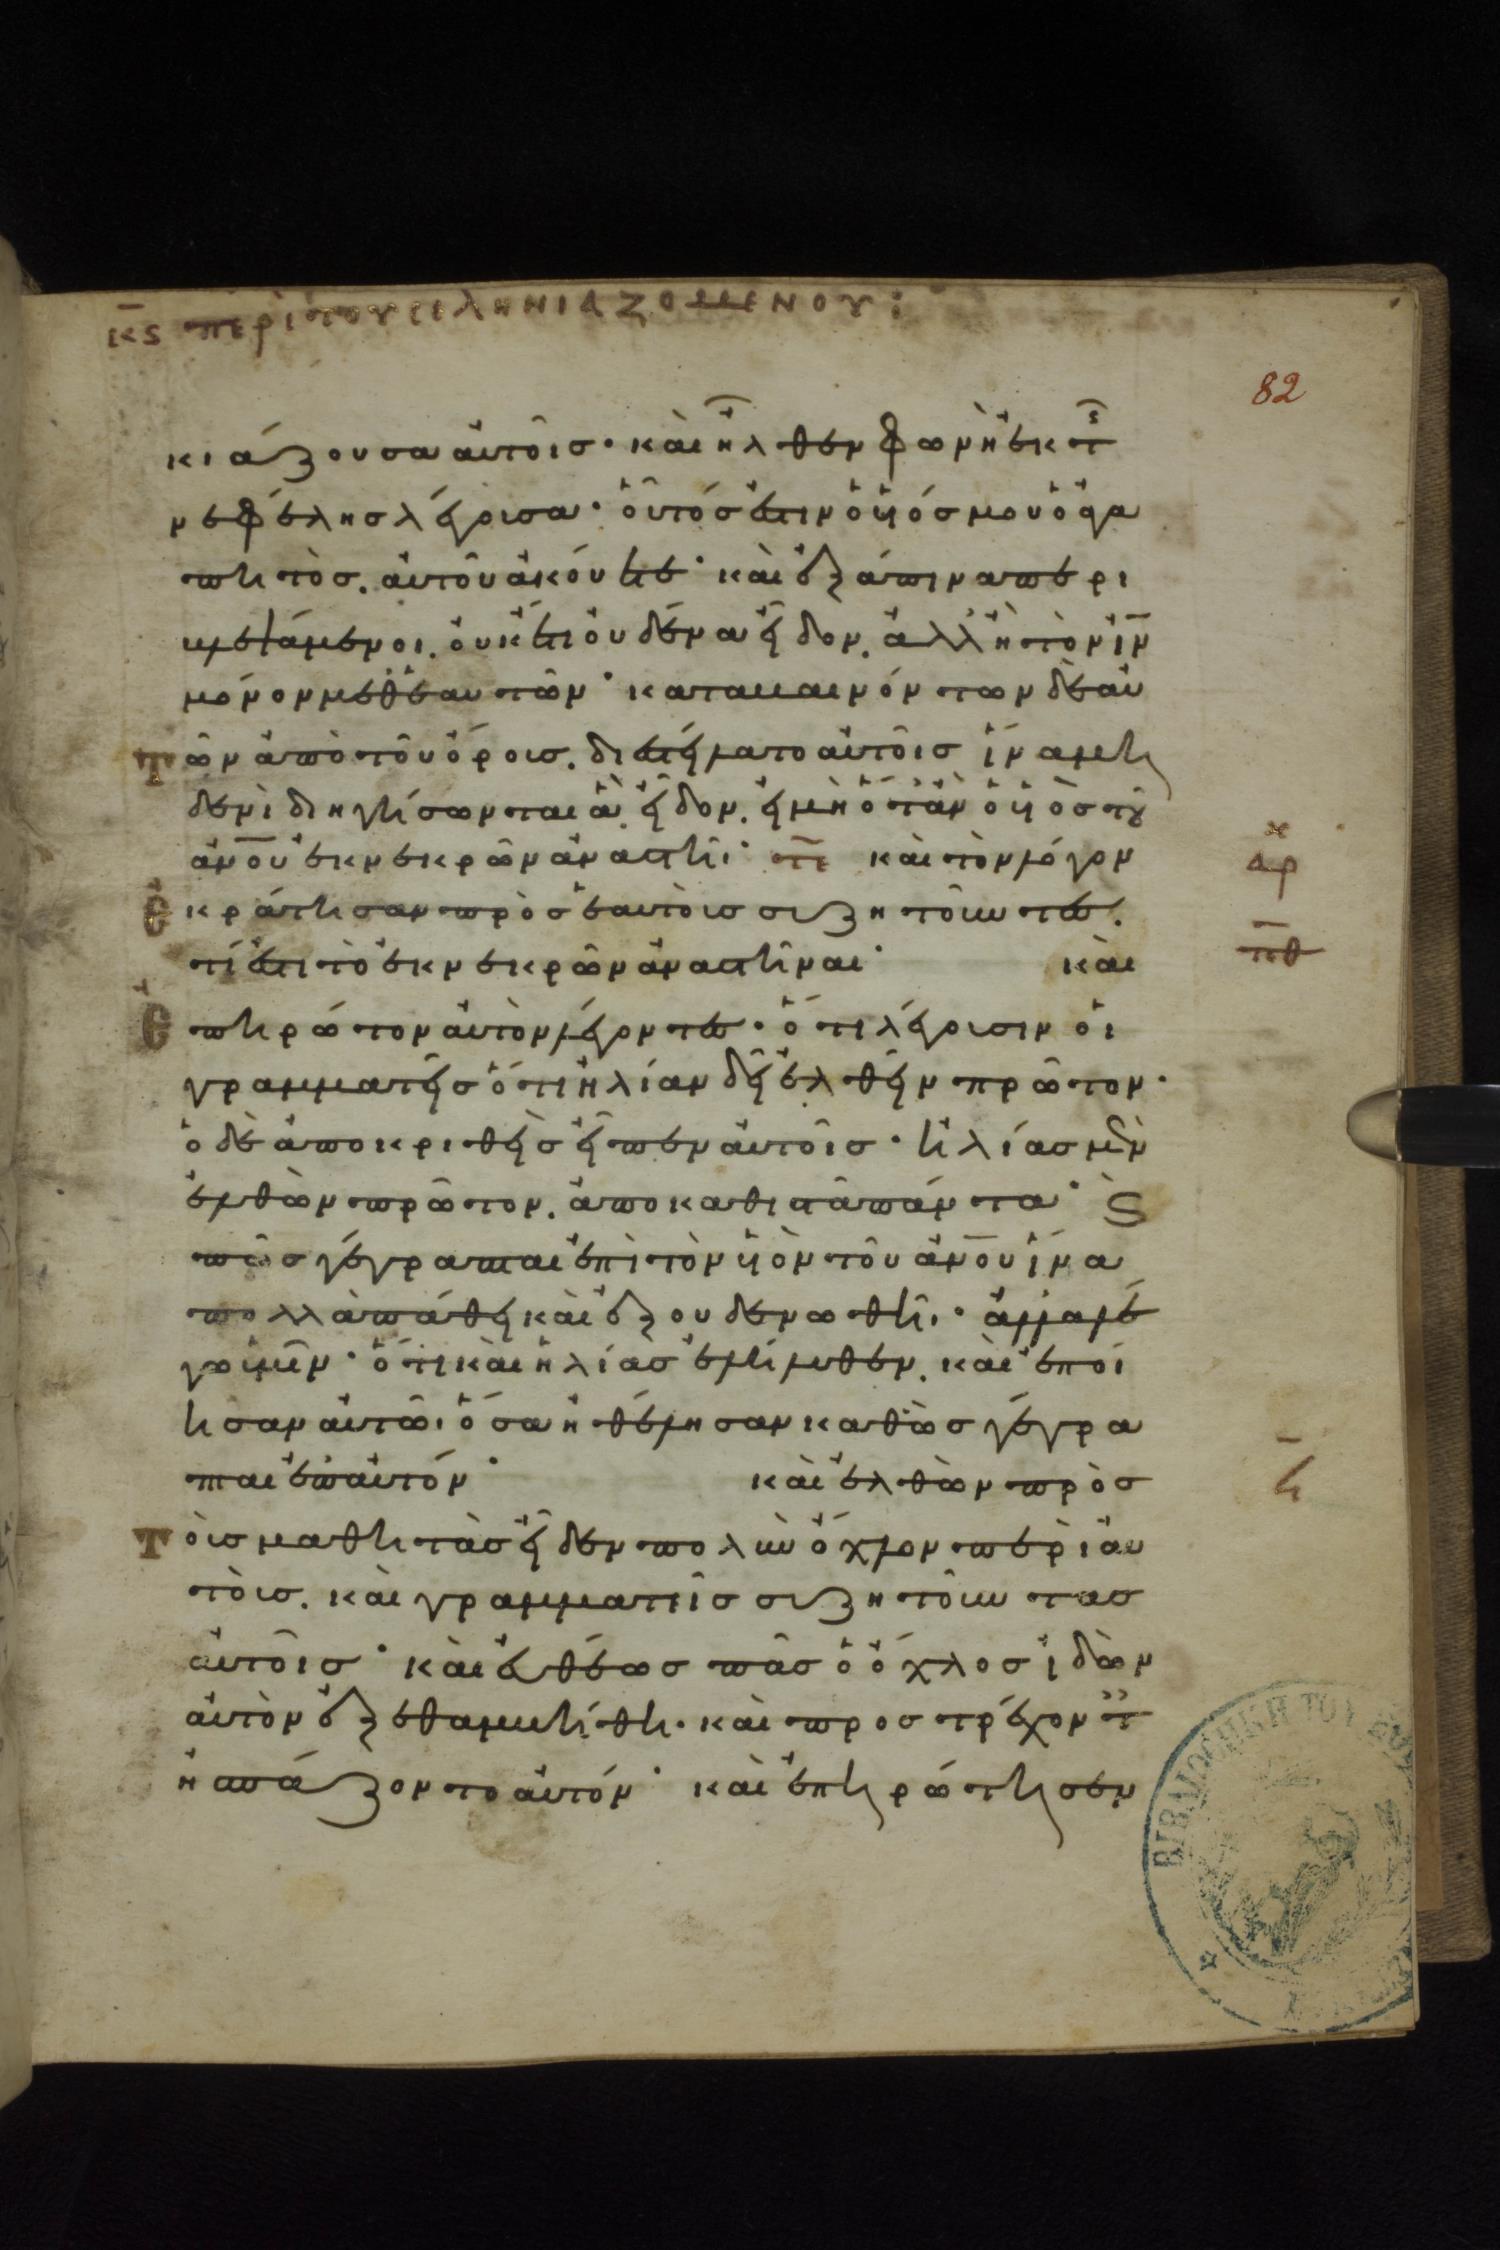 κς περὶ του σεληνιαζομενου:
82
κιάζουσα αὐτοῖσ· καὶ ἦλθεν φωνὴ ἐκ τῆσ
νεφέλησ λέγουσα· οὗτόσ ἐστιν ὁ υἱόσ μου ὁ ἀγα
πητὸσ. αὐτοῦ ἀκούετε· καὶ ἐξάπινα περι
βλεψάμενοι. οὐκέτι οὐδένα εἶδον. ἀλλὰ τὸν ιν
μόνον μεθ' ἑαυτῶν· καταβαινόντων δὲ αυ
τῶν ἀπὸ τοῦ ὄρουσ. διεστείλατο αὐτοῖσ ἵνα μη
δενὶ διηγήσωνται ἃ εἶδον. εἰ μὴ ὅταν ὁ υἱὸσ του
ανου ἐκ νεκρῶν ἀναστῆι· τε καὶ τὸν λόγον
ἐκράτησαν πρὸσ ἑαυτοὺσ συζητοῦντεσ.
τί ἐστι τὸ ἐκ νεκρῶν ἀναστῆναι· καὶ
αρχ
πθ
ἐπηρώτων αὐτὸν λέγοντεσ· ὅτι λέγουσιν οἱ
γραμματεῖσ ὅτι ἠλίαν δεῖ ἐλθεῖν πρῶτον·
ὁ δὲ ἀποκριθεὶσ εἶπεν αὐτοῖσ· ἠλίασ μὲν
ἐλθὼν πρῶτον. ἀποκαθιστᾶ πάντα· ϗ
πῶσ γέγραπται ἐπὶ τὸν υἱὸν τοῦ ανου ἵνα
πολλὰ πάθη καὶ ἐξουδενωθῆι· ἀλλὰ λέ
γω ὑμῖν· ὅτι καὶ ἠλίασ ἐλήλυθεν. καὶ ἐποί
ησαν αὐτῶι ὅσα ἠθέλησαν καθὼσ γέγρα
πται ἐπ' αὐτόν· καὶ ἐλθὼν πρὸσ
τοὺσ μαθητὰσ εἶδεν πολὺν ὄχλον περὶ αυ
τοὺσ. καὶ γραμματεῖσ συζητοῦντασ
αὐτοῖσ· καὶ εὐθέωσ πᾶσ ὁ ὄχλοσ ἰδὼν
αὐτὸν ἐξεθαμβήθη· καὶ προστρέχοντεσ
ἠσπάζοντο αὐτόν· καὶ ἐπηρώτησεν
ΒΙΒΛΙΟΘΗΚΗ ΤΟΥ